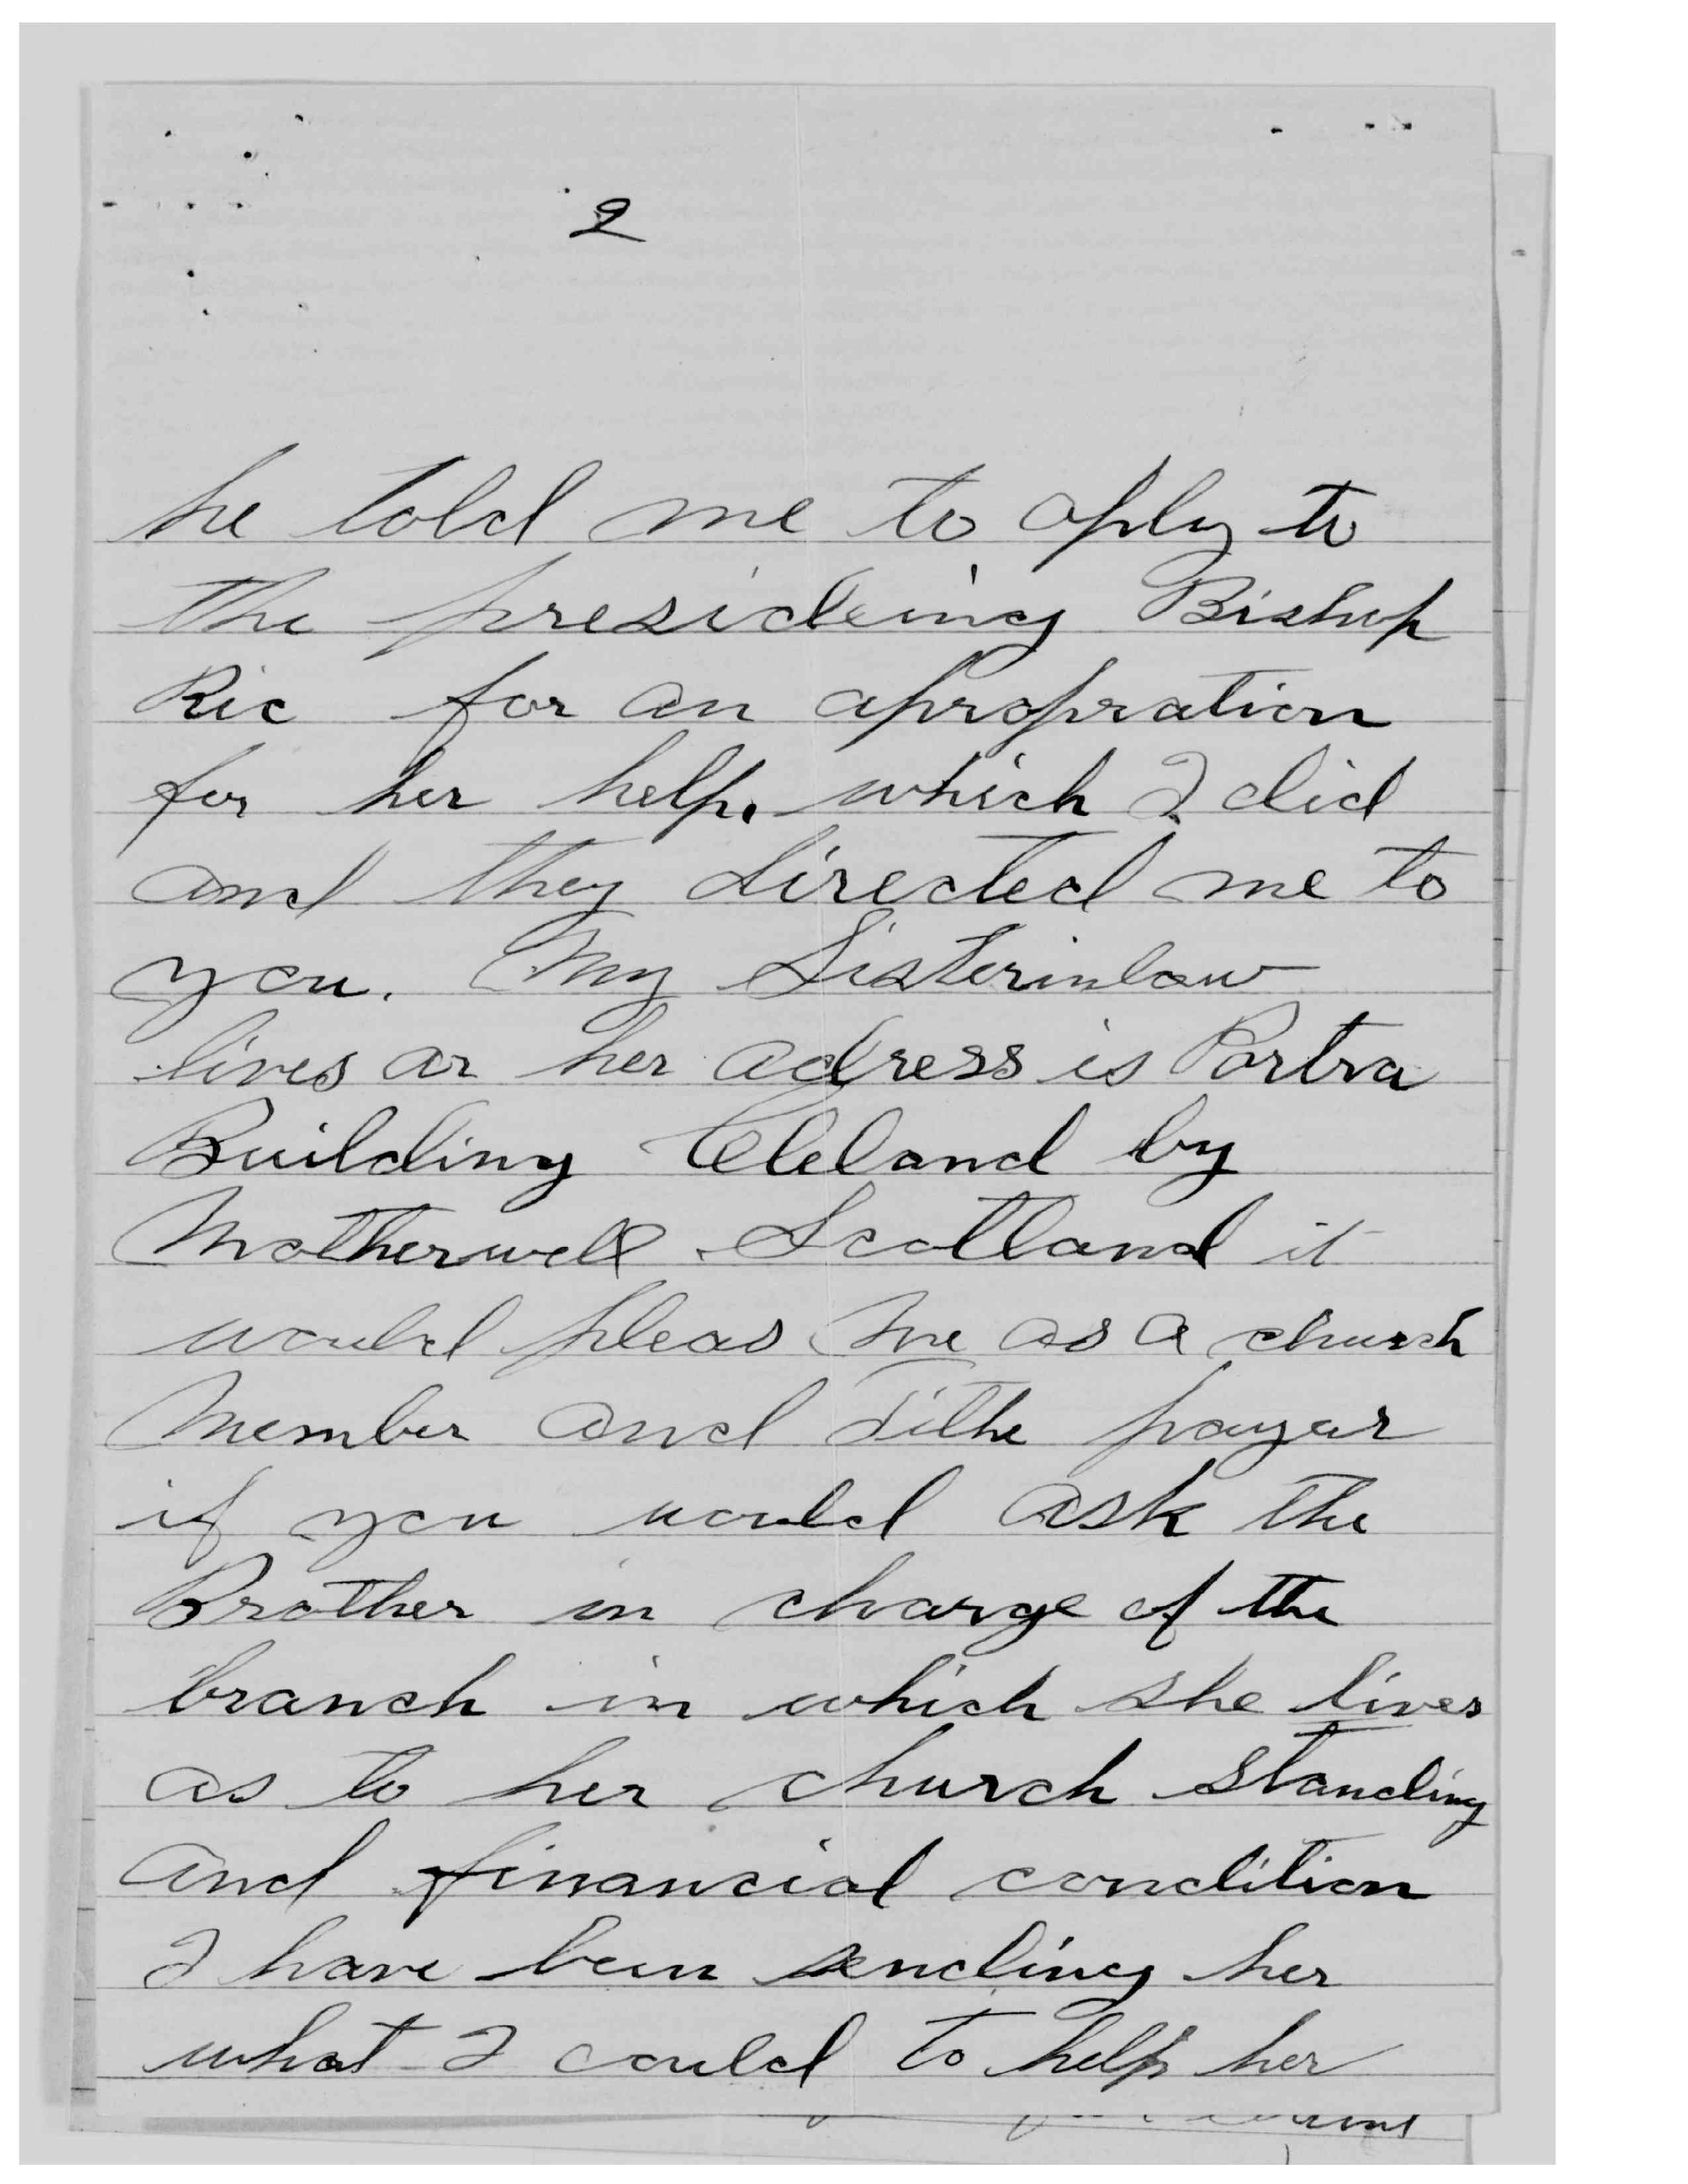 2
he told me to aply to
the presideing Bishop
Ric for an apropration
for her help. which I did
and they directed me to
you. My Sisterinlaw
lives or her adress is Portra
Building Cleland by
Motherwell Scotland it
would pleas me as a church
Member and Tithe payer
if you would ask the
Brother in charge of the
branch in which she lives
as to her church standing
and financial condition
I have been sending her
what I could to help her